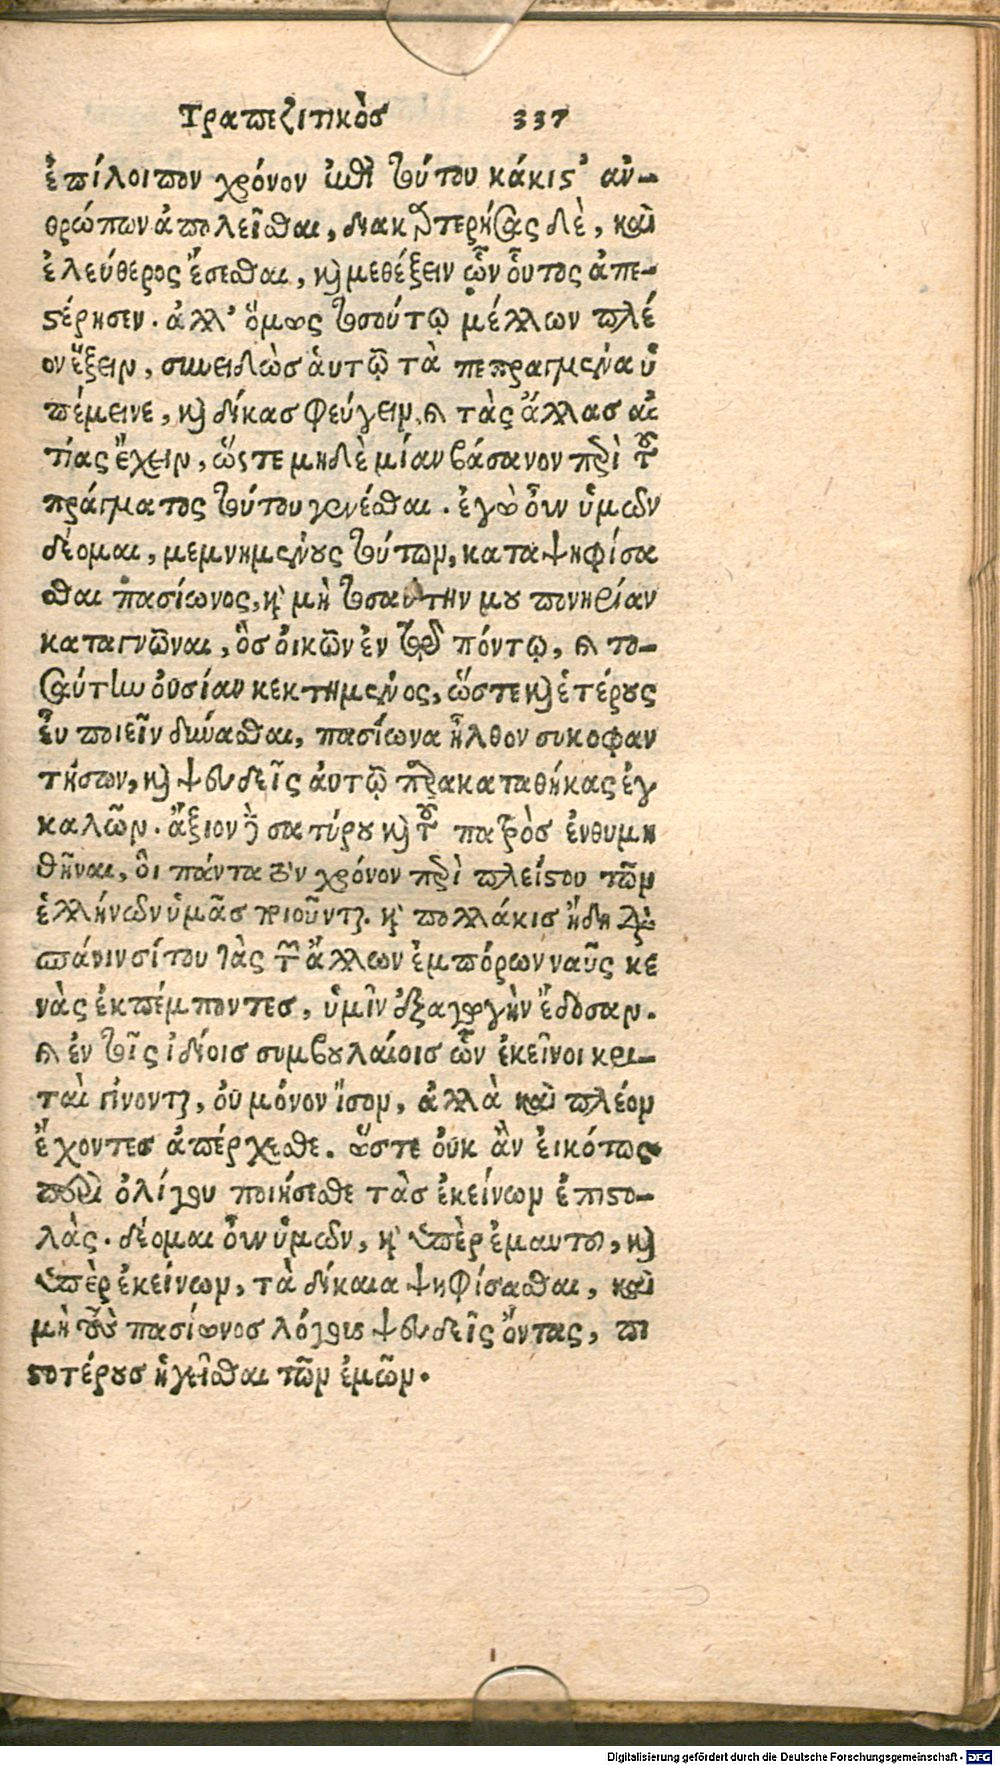 Τραπεζιτικὸσ 337
ἐπίλοιπον χρόνον ὑπὸ τούτου κάκιστ' ἀν-
θρώπων ἀπολεῖσθαι, διακαρτερήσας δὲ, καὶ
ἐλεύθερος ἔσεσθαι, καὶ μεθέξειν ὧν οὗτος ἀπε-
στέρησεν. ἀλλ' ὅμως τοσούτῳ μέλλων πλέ
ον ἕξειν, συνειδὼσ ἁυτῷ τὰ πεπραγμένα ὑ
πέμεινε, καὶ δίκασ φεύγειν, καὶ τὰς ἄλλασ αἰ
τίας ἔχειν, ὥστε μηδὲ μίαν βάσανον περὶ τοῦ
πράγματος τούτου γενέσθαι. ἐγὼ οὖν ὑμῶν
δέομαι, μεμνημένους τούτων, καταψηφίσα
σθαι πασίωνος, καὶ μὴ τοσαύτην μου πονηρίαν
καταγνῶναι, ὃσ ὀικῶν ἐν τῷ πόντῳ, καὶ το-
σαύτην ὀυσίαν κεκτημένος, ὥστε καὶ ἑτέρους
ἐυ ποιεῖν δύνασθαι, πασίωνα ἦλθον συκοφαν
τήσων, καὶ ψευδεῖς ἀυτῷ παρακαταθήκας ἐγ
καλῶν. ἄξιον δὲ σατύρου καὶ τοῦ πατρὸσ ἐνθυμη
θῆναι, ὃι πάντα τὸν χρόνον περὶ πλείστου τῶν
ἑλλήνων ὑμᾶσ ποιοῦνται. καὶ πολλάκισ ἤδη διὰ
σπάνιν σίτου τὰς τῶν ἄλλων ἐμπόρων ναῦς κε
νὰς ἐκπέμποντεσ, ὑμῖν ἐξαγωγὴν ἔδοσαν.
καὶ ἐν τοῖς ἰδίοισ συμβολαίοισ ὧν ἐκεῖνοι κρι-
ταὶ γίνονται, ὀυ μόνον ἴσον, ἀλλὰ καὶ πλέον
ἔχοντεσ ἀπέρχεσθε. ὥστε ὀυκ ἂν ἐικότως
περὶ ὀλίγου ποιήσεσθε τὰσ ἐκείνων ἐπιστο-
λὰς. δέομαι οὖν ὑμῶν, καὶ ὑπὲρ ἐμαυτοῦ, καὶ
ὑπὲρ ἐκείνων, τὰ δίκαια ψηφίσασθαι, καὶ
μὴ τοὺς πασίωνοσ λόγους ψευδεῖς ὄντας, πι
στοτέρουσ ἡγεῖσθαι τῶν ἐμῶν.
Digitalisierung gefördert durch die Deutsche Forschungsgemeinschaft - DFG